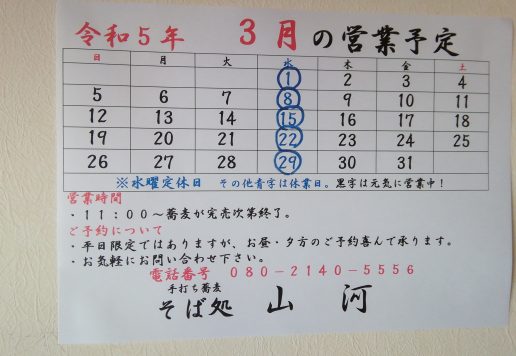 令和5年 3月の営業予定
日 月 火 水 木 金 土
1 2 3 4
5 6 7 8 9 10 11
12 13 14 15 16 17 18
19 20 21 22 23 24 25
26 27 28 29 30 31
※水曜定休日 その他青字は休業日。黒字は元気に営業中！
営業時間
・11：00～蕎麦が完売次第終了。
ご予約について
・平日限定ではありますが、お昼・夕方のご予約喜んで承ります。
・お気軽にお問い合わせ下さい。
電話番号 080-2140-5556
手打ち蕎麦
そば処 山河